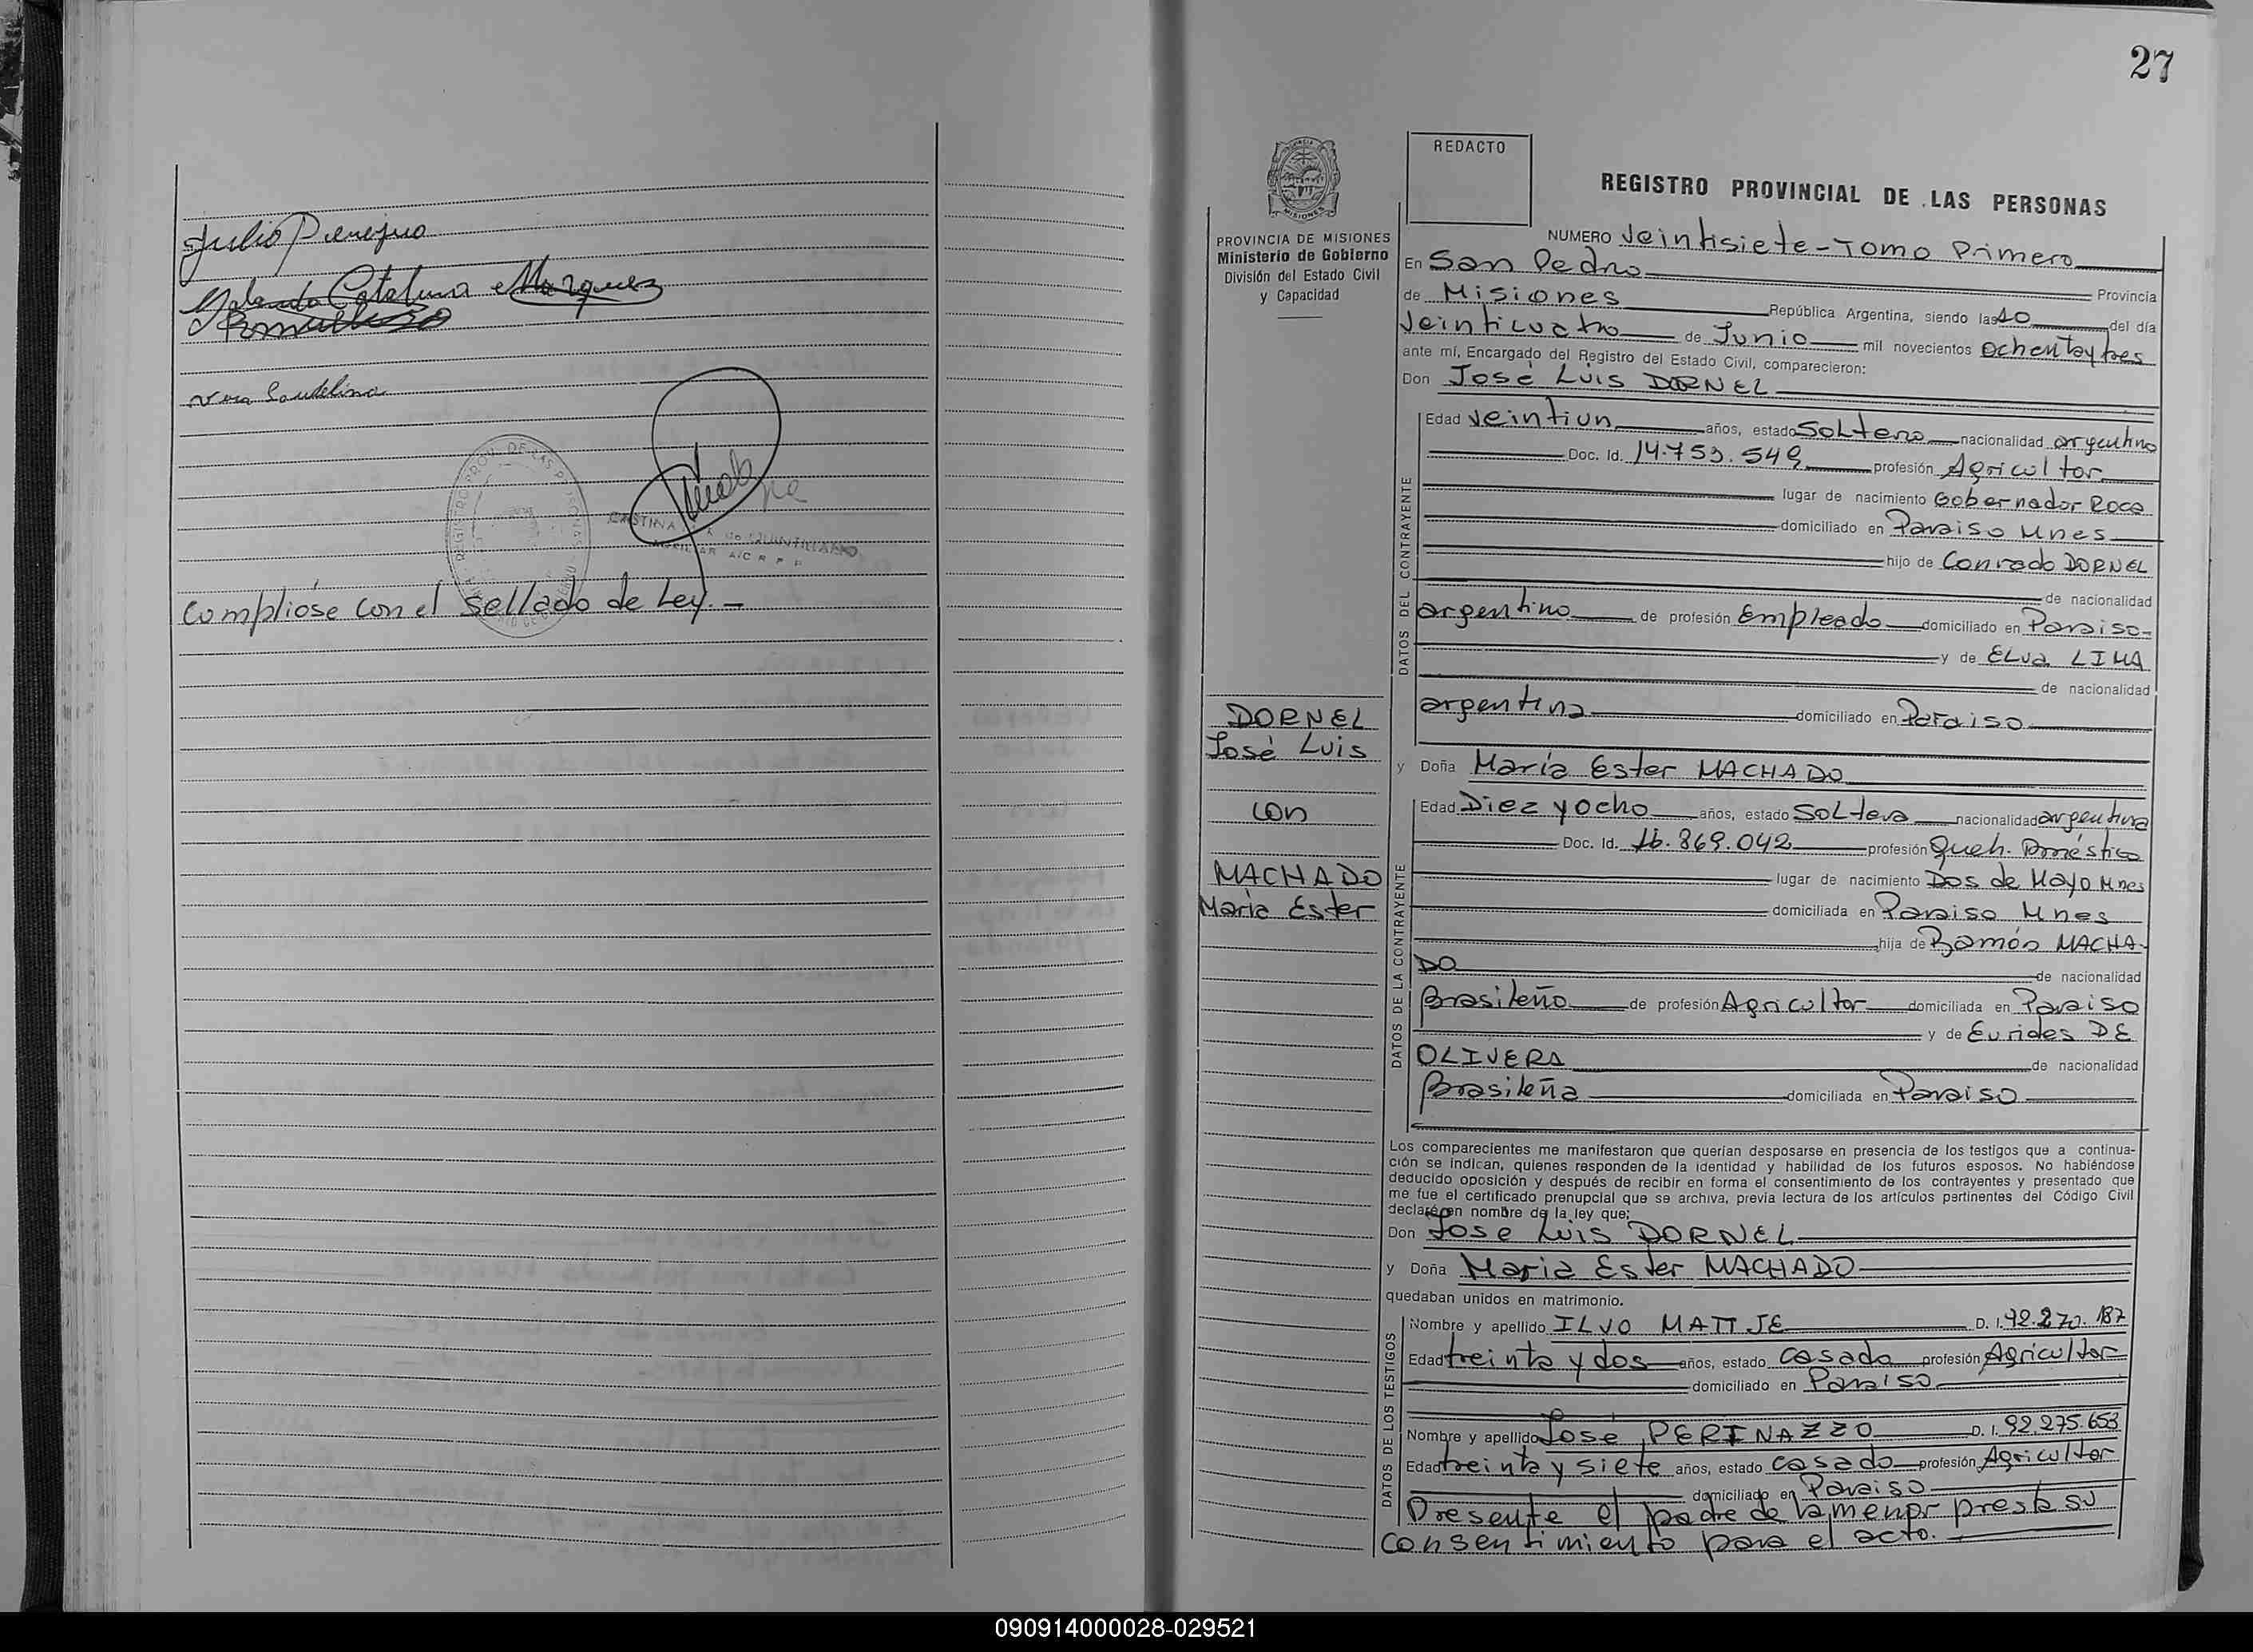 Julio Pereyra
Yolanda Catalina Marquez
Compliose con el Sellado de Ley. -
27
REDACTO
REGISTRO PROVINCIAL DE LAS PERSONAS
PROVINCIA DE MISIONES
Ministerio de Gobierno
División del Estado Civil
y Capacidad
NUMERO Veintisiete - Tomo Primero
En San Pedro Provincia
de Misiones República Argentina, siendo las 10 del día
Veinticuatro de Junio mil novecientos ochentaytres
ante mí, Encargado del Registro del Estado Civil, comparecieron:
Don José Luis DORNEL
DATOS DEL CONTRAYENTE
Edad Veintiun años, estado Soltero nacionalidad argentino
Doc. Id. 14.753.549 profesión Agricultor
lugar de nacimiento Gobernador Roca
domiciliado en Paraiso Mnes
hijo de Conrado DORNEL
de nacionalidad
argentino de profesión Empleado domiciliado en Paraiso-
y de Elva LIMA
de nacionalidad
argentina domiciliado en Paraiso
DORNEL
José Luis
con
MACHADO
Maria Ester
y Doña María Ester MACHADO
DATOS DE LA CONTRAYENTE
Edad Diez y ocho años, estado Soltera nacionalidad argentina
Doc. Id. 16.869.042 profesión Queh. Doméstico
lugar de nacimiento Dos de Mayo Mnes
domiciliada en Paraiso Mnes
hija de Ramón MACHA-
DO de nacionalidad
Brasileño de profesión Agricultor domiciliada en Paraiso
y de Eurides DE
OLIVERA de nacionalidad
Brasileña domiciliada en Paraiso
Los comparecientes me manifestaron que querían desposarse en presencia de los testigos que a continua-
ción se indican, quienes responden de la identidad y habilidad de los futuros esposos. No habiéndose
deducido oposición y después de recibir en forma el consentimiento de los contrayentes y presentado que
me fue el certificado prenupcial que se archiva, previa lectura de los artículos pertinentes del Código Civil
declaré en nombre de la ley que:
Don Jose Luis DORNEL
y Doña Maria Ester MACHADO
quedaban unidos en matrimonio.
DATOS DE LOS TESTIGOS
Nombre y apellido ILVO MATTJE D. I. 92.270.187
Edad treinta y dos años, estado casado profesión Agricultor
domiciliado en Paraiso
Nombre y apellido José PERINAZZO D. I. 92.275.653
Edad treinta y siete años, estado casado profesión Agricultor
domiciliado en Paraiso
Presente el padre de la menor presta su
consentimiento para el acto.
090914000028-029521